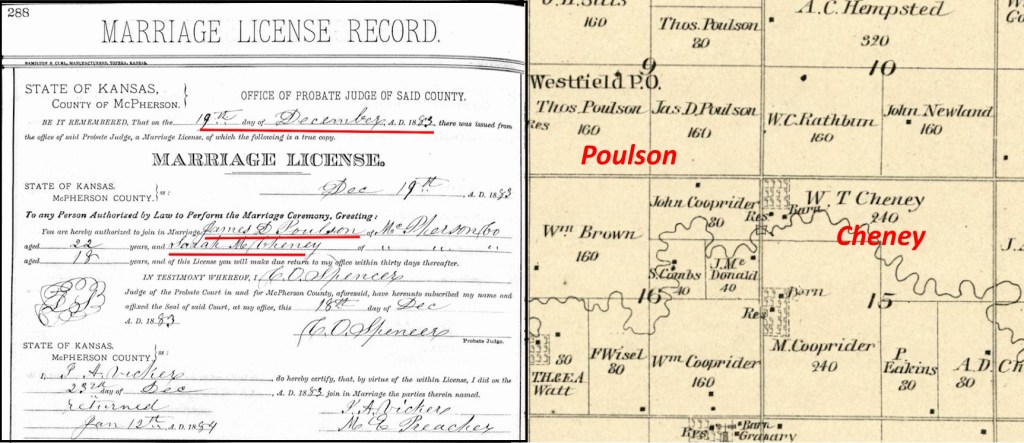 288
MARRIAGE LICENSE RECORD.
HAMILTON & CURL, MANUFACTURERS, TOPEKA, KANSAS.
STATE OF KANSAS,
COUNTY OF MCPHERSON.
OFFICE OF PROBATE JUDGE OF SAID COUNTY.
BE IT REMEMBERED, That on the 19th day of December A. D. 1883, there was issued from
the office of said Probate Judge, a Marriage License, of which the following is a true copy.
MARRIAGE LICENSE.
STATE OF KANSAS,
MCPHERSON COUNTY. ss:
Dec 19th, A. D. 1883
To any Person Authorized by Law to Perform the Marriage Ceremony, Greeting:
You are hereby authorized to join in Marriage James D Poulson of McPherson Co
aged 22 years, and Sarah M Cheney of " " "
aged 18 years, and of this License you will make due return to my office within thirty days thereafter.
IN TESTIMONY WHEREOF, I C. O. Spencer
Judge of the Probate Court in and for McPherson County, aforesaid, have hereunto subscribed my name and
affixed the Seal of said Court, at my office, this 18th day of Dec
A. D. 1883
C. O. Spencer
Probate Judge.
STATE OF KANSAS,
MCPHERSON COUNTY. ss:
I, F. A. Vicker, do hereby certify, that, by virtue of the within License, I did on the
23th day of Dec A. D. 1883 join in Marriage the parties therein named.
returned
Jan 12th, A. D. 1884
M. E. Preacher
160
Thos. Poulson
80
A.C. Hempsted
320
9
10
Westfield P.O.
Thos. Poulson
Res
160
Jas. D. Poulson
160
W.C. Rathbun
160
John Newland
160
Poulson
John Cooprider
80
Res
Barn
W. T. Cheney
240
Cheney
Wm Brown
160
S. Combs
40
J. Mc Donald
40
16
15
Barn
Res
M. Cooprider
240
80
F Wisel
80
Wm Cooprider
160
T.H.& E.A
Watt
P. Eakins
80
A.D. Ch
80
Res
Barn
Granary